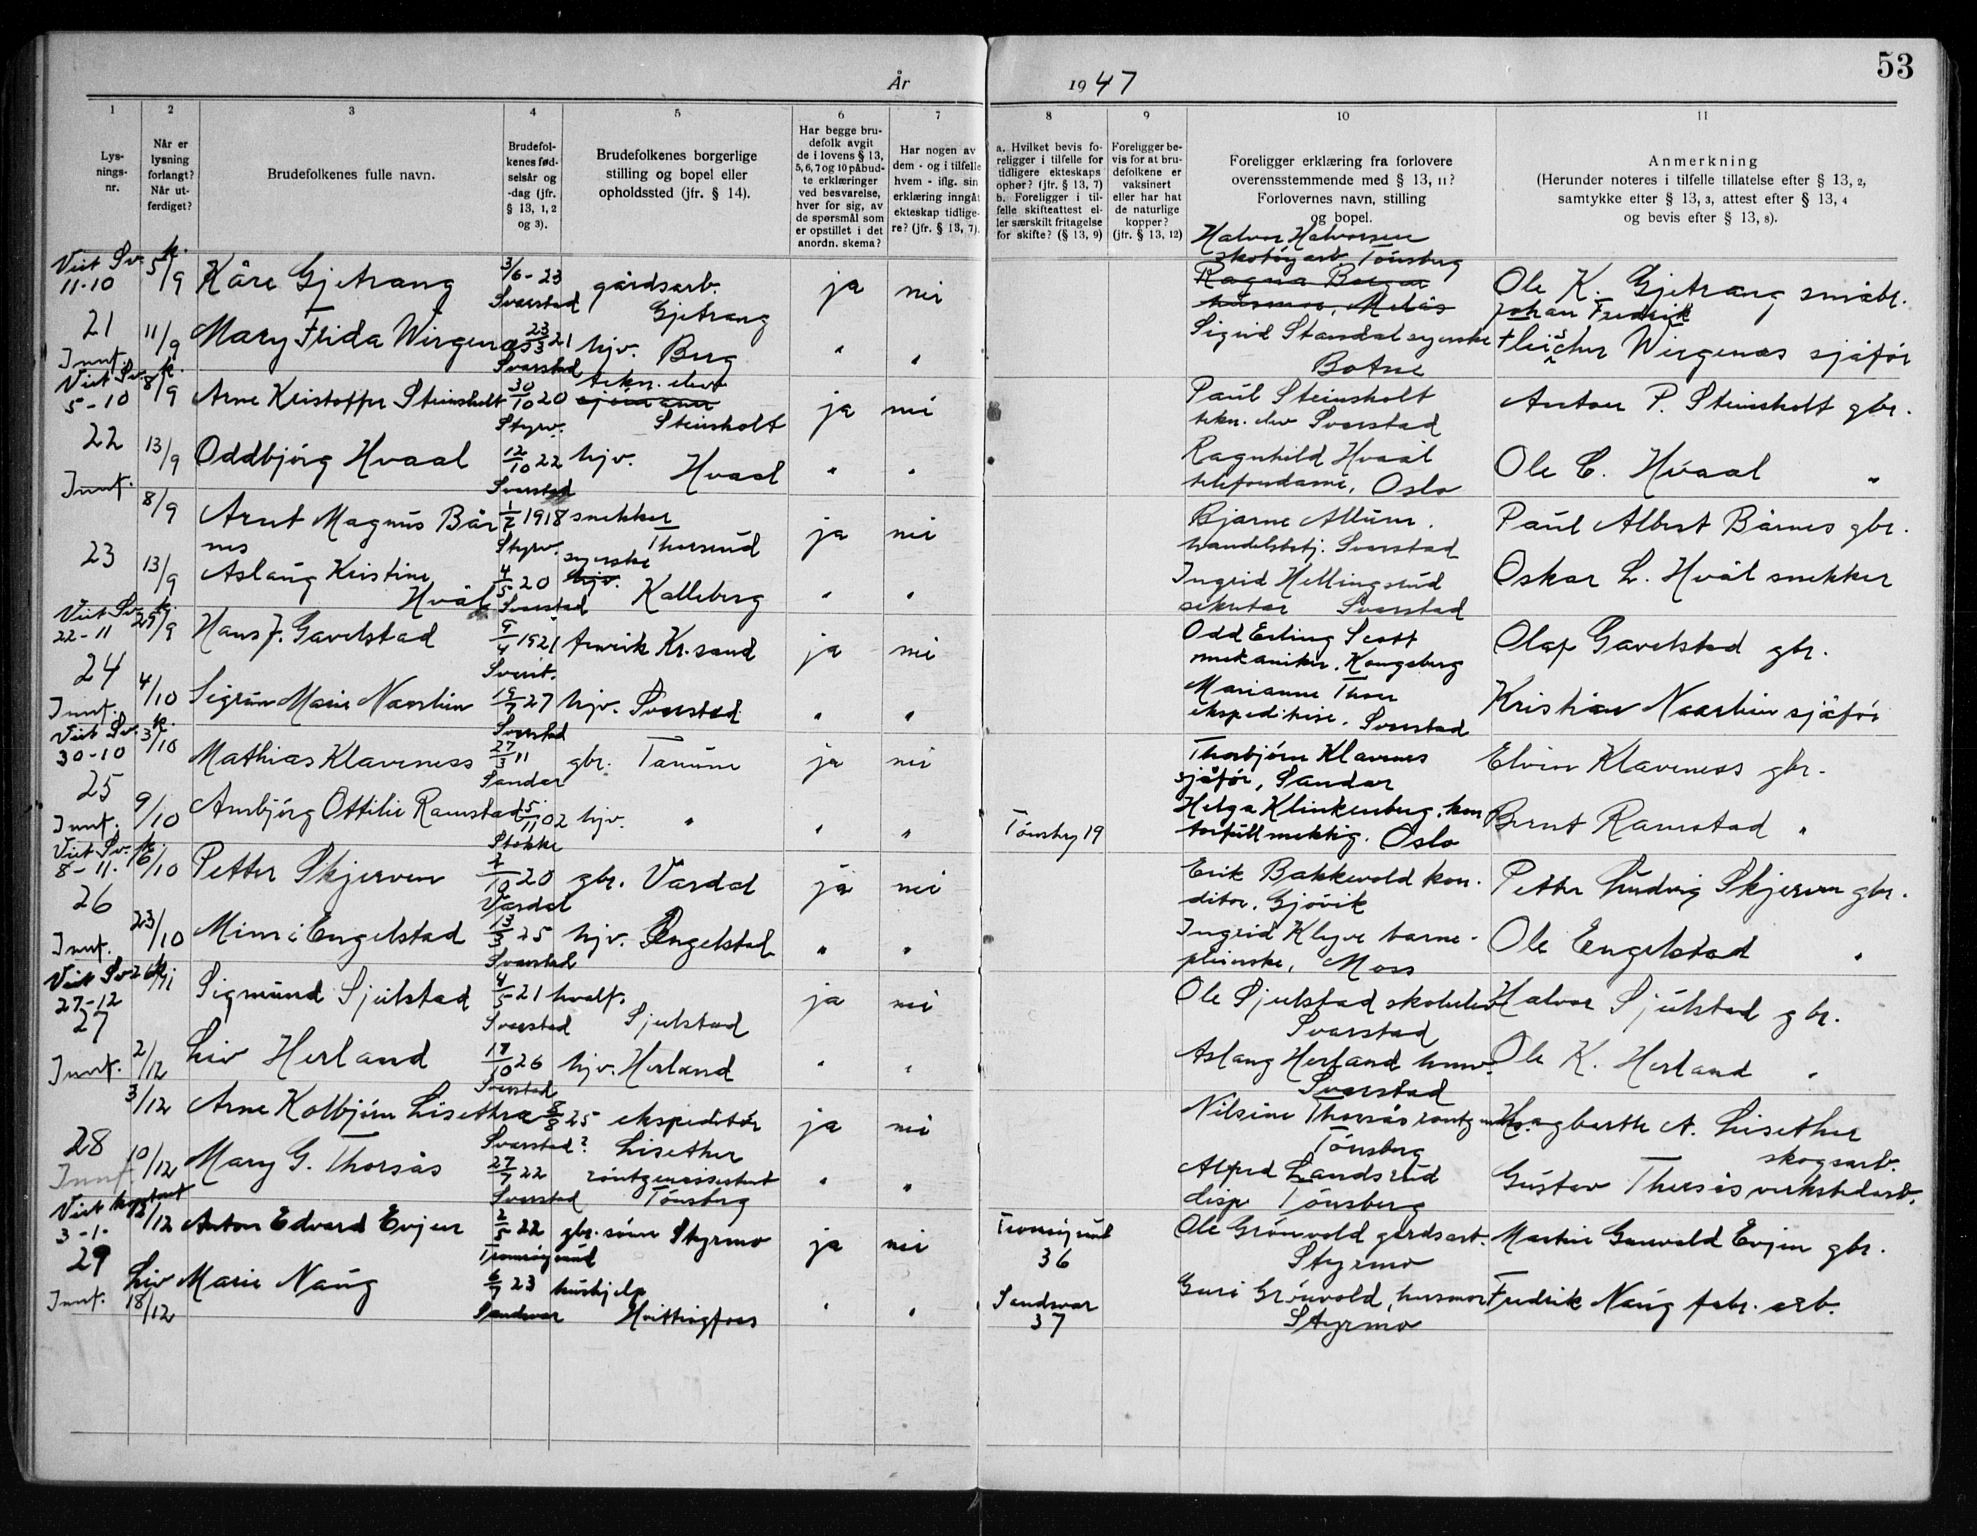 53
År 1947
1
2
3
4
5
6
7
8
9
10
11
Lys-
nings-
nr.
Når er
lysning
forlangt?
Når ut-
ferdiget?
Brudefolkenes fulle navn.
Brudefol-
kenes fød-
selsår og
-dag (jfr.
§ 13, 1, 2
og 3).
Brudefolkenes borgerlige
stilling og bopel eller
opholdssted (jfr. § 14).
Har begge bru-
defolk avgit
de i lovens § 13,
5, 6, 7 og 10 påbud-
te erklæringer
ved besvarelse,
hver for sig, av
de spørsmål som
er opstillet i det
anordn. skema?
Har nogen av
dem - og i tilfelle
hvem - iflg. sin
erklæring inngåt
ekteskap tidlige-
re? (jfr. § 13, 7).
a. Hvilket bevis fo-
religger i tilfelle for
tidligere ekteskaps
ophør? (jfr. § 13, 7)
b. Foreligger i til-
felle skifteattest el-
ler særskilt fritagelse
for skifte? (§ 13, 9)
Foreligger be-
vis for at bru-
defolkene er
vaksinert
eller har hat
de naturlige
kopper?
(jfr. § 13, 12)
Foreligger erklæring fra forlovere
overensstemmende med § 13, 11?
Forlovernes navn, stilling
og bopel.
Anmerkning
(Herunder noteres i tilfelle tillatelse efter § 13, 2,
samtykke etter § 13, 3, attest efter § 13, 4
og bevis efter § 13, 8).
Viet Sv. k.
11-10
5/9 Kåre Gjetrang 3/6-23 gårdsarb. ja nei
Svarstad Gjetrang
Halvor Halvorsen
skotøyarb. Tönsberg
Ragna Borgen
husmor, Melås
Ole K. Gjetrang småbr.
21
Innf.
11/9 Mary Frida Wirgenes 23/3 21 hjv. Berg " "
Svarstad
Sigrid Standal syerske
Botne
Johan Fredrik
Fleischer Wirgenes sjåfør
Viet Sv. k.
5-10
8/9 Arne Kristoffer Steinsholt 30/10 20 tekn. elev ja nei
sjømann
Styrv. Steinsholt
Paul Steinsholt
tekn. elev Svarstad
Anton P. Steinsholt gbr.
22
Innf.
13/9 Oddbjørg Hvaal 12/10 22 hjv. Hvaal " "
Svarstad
Ragnhild Hvaal
telefondame, Oslo
Ole C. Hvaal "
8/9 Arnt Magnus Bår 1/2 1918 snekker ja nei
nes Styrv. Thorsrud
Bjarne Allum.
handelsbetj. Svarstad
Paul Albert Bårnes gbr.
23
13/9 Aslaug Kristine 4/5 20 syerske
hjv.
Hvål Svarstad Kalleberg " "
Ingrid Hellingsrud
sekretær Svarstad
Oskar L. Hvål snekker
Viet Sv. k.
22-11
29/9 Hans J. Gavelstad 9/4 1921 fenrik Kr.sand ja nei
Odd Erling Scott
mekaniker, Kongsberg
Olaf Gavelstad gbr.
24
Innf.
4/10 Sigrun Marie Naerlien 19/7 27 hjv. Svarstad " "
Svarstad
Marianne Thoer
ekspeditrise, Svarstad
Kristian Naerlien sjåfør
Viet Sv. k.
30-10
3/10 Mathias Klaveness 27/3 11 gbr. Tanum ja nei
Sandar
Thorbjørn Klavenes
sjåfør, Sandar
Elvin Klaveness gbr.
25
Innf.
9/10 Ansbjörg Ottilie Ramstad 5/11 02 hjv. " " "
Stokke
Tönsberg 19
Helga Klinkenberg, kon
torfullmektig. Oslo
Bernt Ramstad "
Viet Sv. k.
8-11.
16/10 Petter Skjerven 2/10 20 gbr. Vardal ja nei
Vardal
Erik Bakkevold kon-
ditor, Gjövik
Petter Ludvig Skjerven gbr.
26
Innf.
23/10 Mimi Engelstad 13/3 25 hjv. Engelstad " "
Svarstad
Ingrid Kleyve barne-
pleierske, Moss
Ole Engelstad "
Viet Sv. k.
27-12
26/11 Sigmund Sjulstad 4/5 21 hvalf. ja nei
Svarstad Sjulstad
Ole Sjulstad skoleelev
Svarstad
Halvor Sjulstad gbr.
27
Innf.
2/12 Liv Herland 17/10 26 hjv. Herland " "
Svarstad
Aslaug Herland
Svarstad
Ole K. Herland "
3/12 Arne Kolbjörn Lisethra 8/8 25 ekspeditör ja nei
Svarstad? Lisether
Nilsine Thorsås
Tönsberg
Hagbarth A. Lisether
skogsarb.
28
Innf.
10/12 Mary G. Thorsås 27/7 22 röntgenassistent " "
Svarstad Tönsberg
Alfred Landsrud
disp Tönsberg
Gustav Thorsås verkstedarb.
Viet
3-1-
12/12 Anton Edvard Evjen 2/5 22 gbr. sönn Styrmo ja nei
Tromsöysund
Tromsöysund
36
Ole Grönvold gårdsarb.
Styrmo
Martin Gunvald Evjen gbr.
29
Innf.
18/12 Liv Marie Naug 6/7 23 hushjelp " "
Sandsvær Hvittingfoss
Sandsvær
37
Guri Grönvold, husmor
Styrmo
Fredrik Naug fabr. arb.